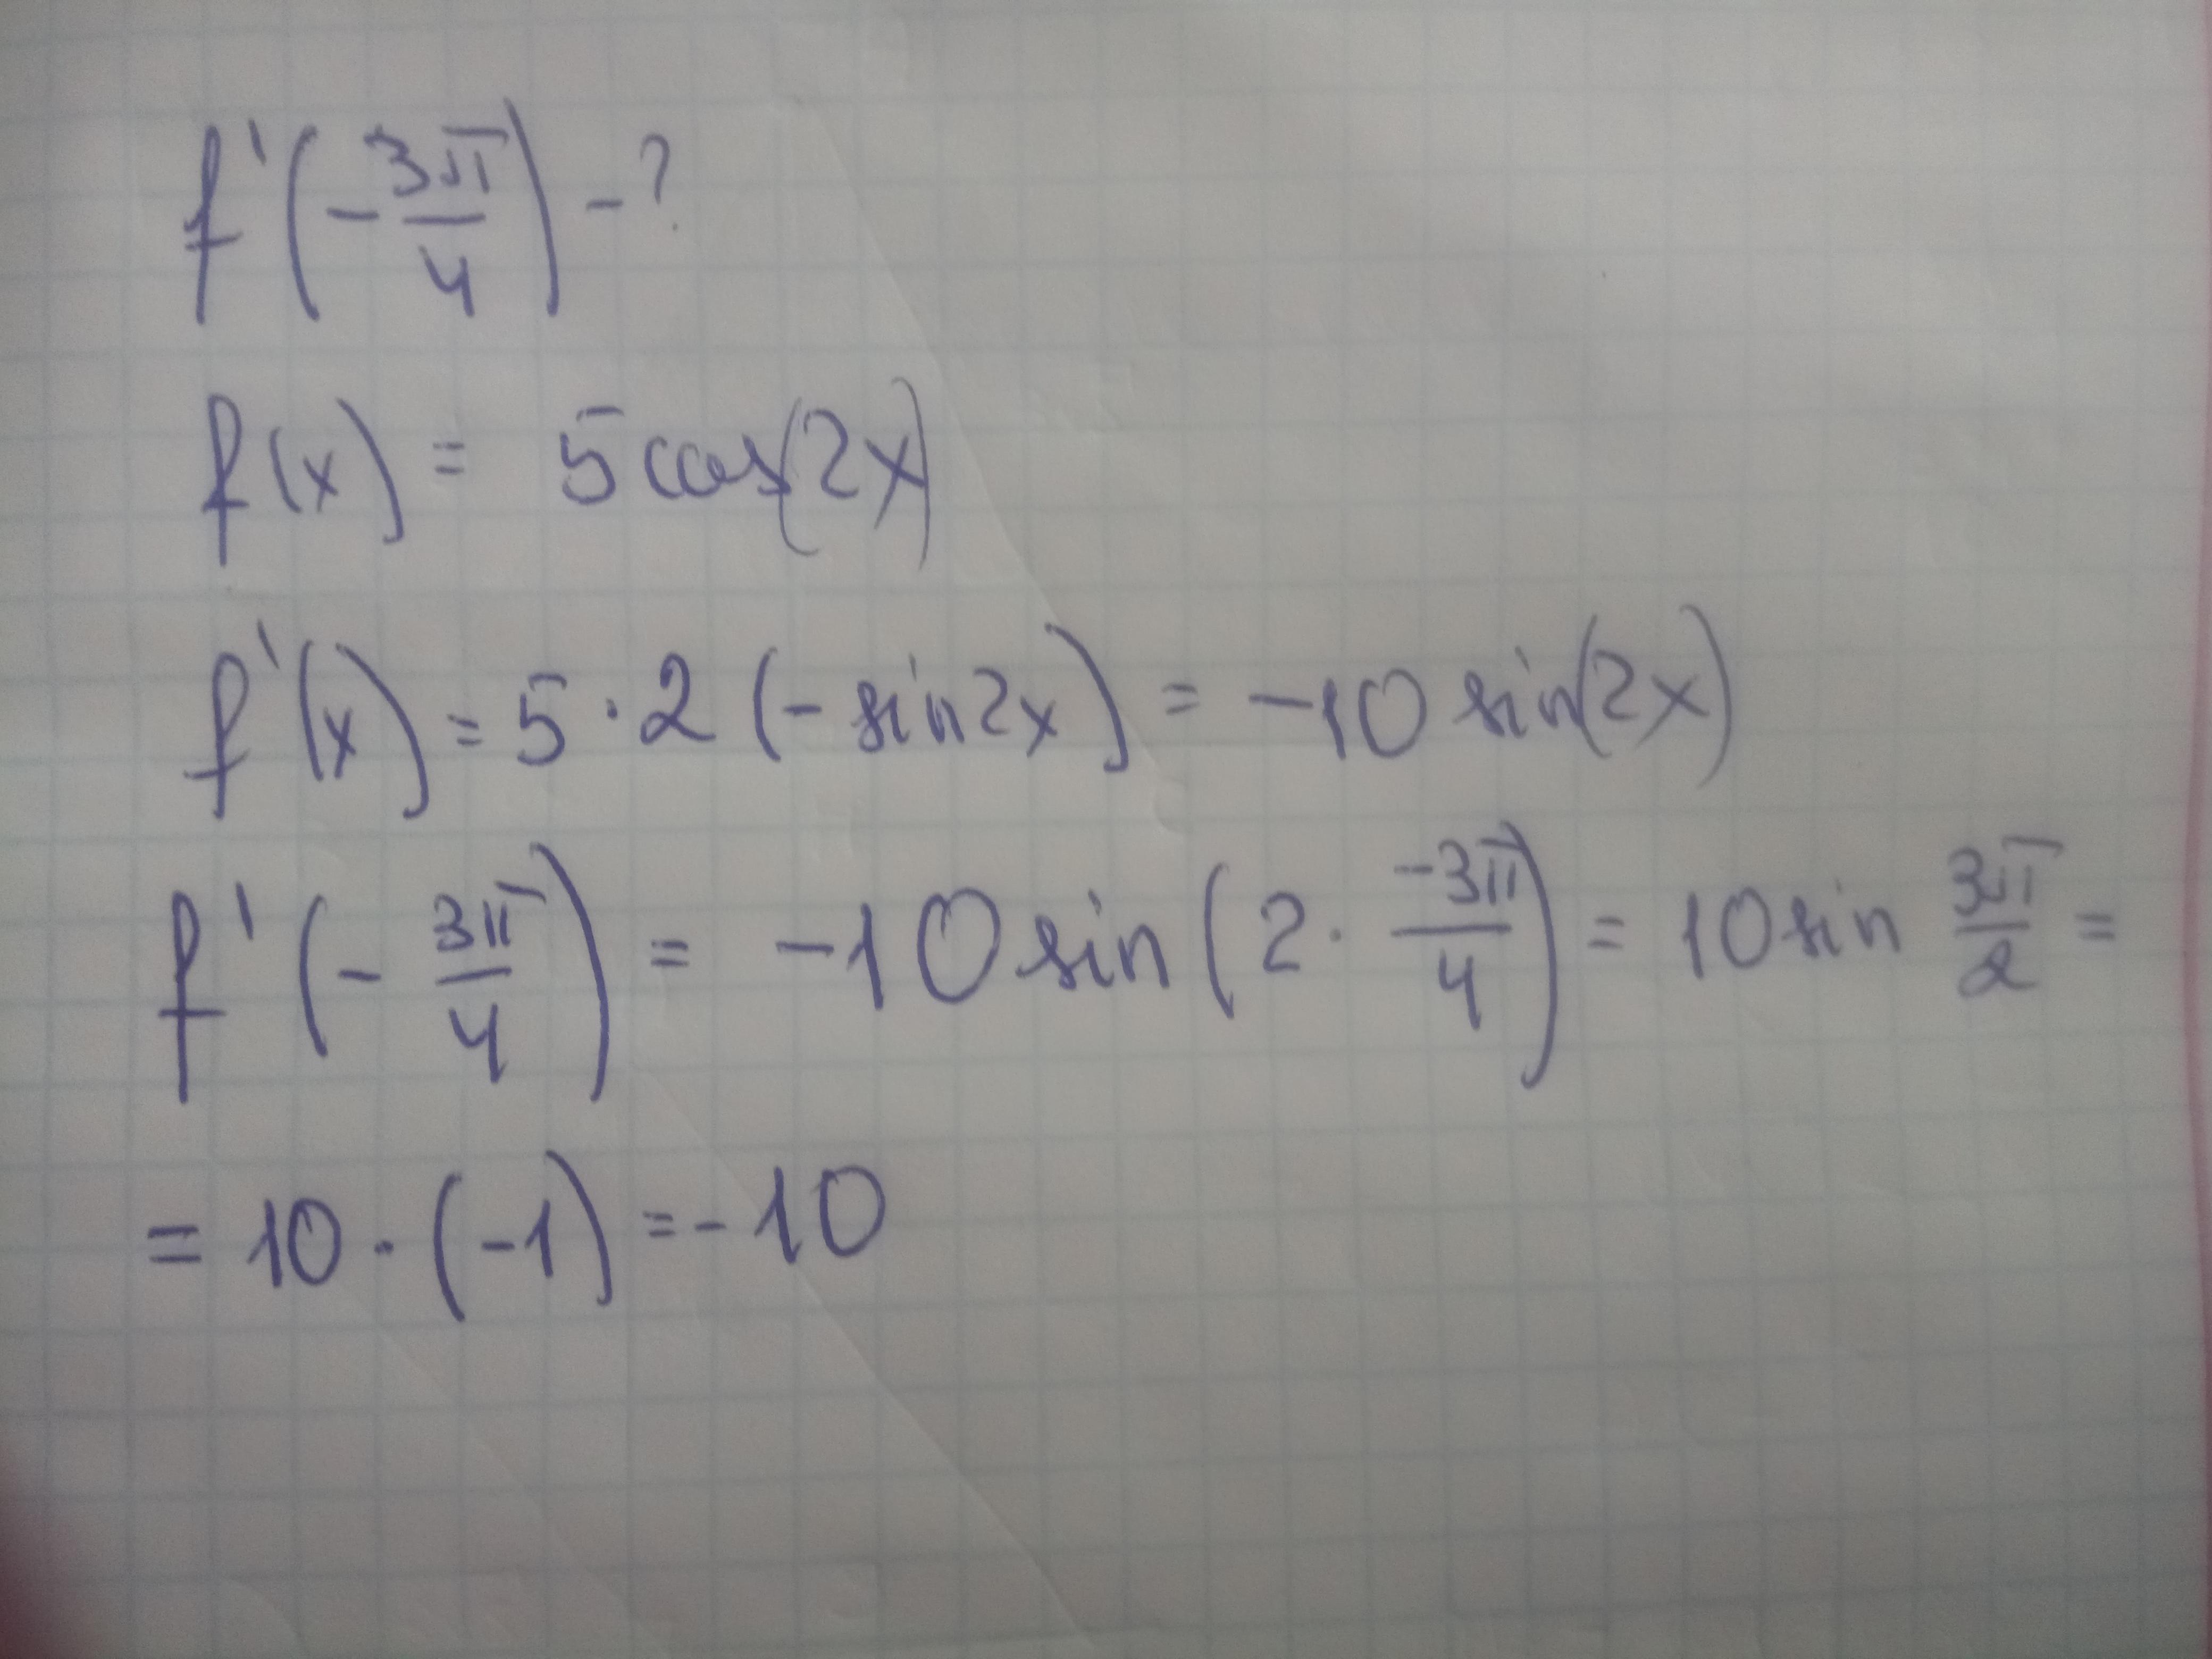 f'(-3π/4) - ?
f(x) = 5cos(2x)
f'(x) = 5·2(-sin2x) = -10 sin(2x)
f'(-3π/4) = -10 sin(2·-3π/4) = 10 sin 3π/2 =
= 10·(-1) = -10